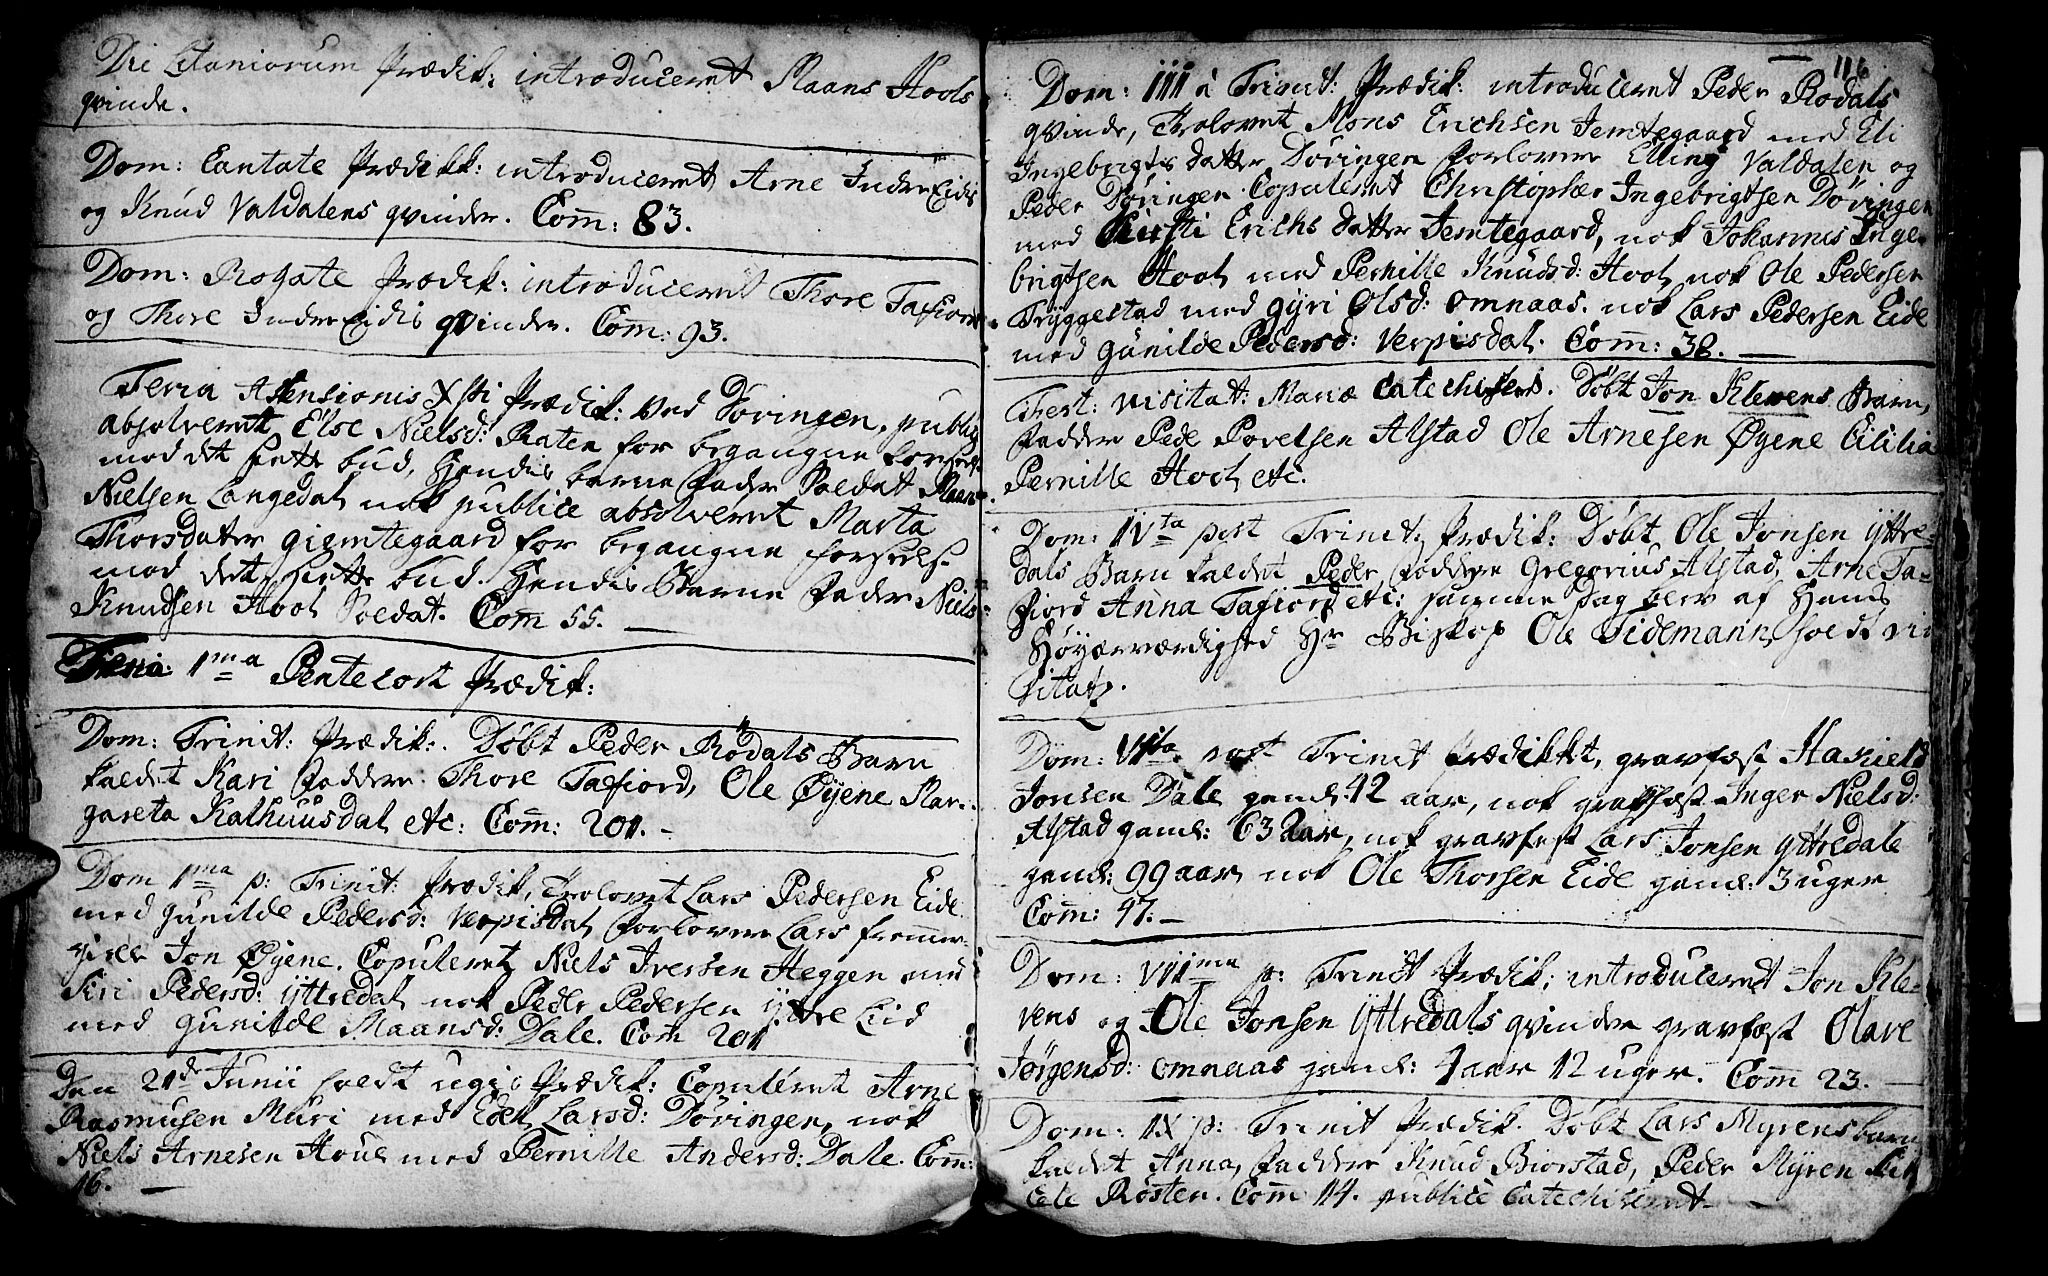 Die Litaniorum Prædik: introduceret Maans Hools
qvinde.
Dom: Cantate Prædikk: introduceret Arne Indre Eidis
og Knud Valdalens qvinder. Com̄: 83.
Dom: Rogate Prædik: introduceret Thore Tafiord
og Thore Indre Eidis qvinder. Com̄: 93.
Feria Ascensionis Xsti Prædik: ved Döringen, public
absolveret Else Nielsd: Raten for begangne forseel-
mod det siette bud, hendis barne fader Soldat Maans
Nielsen Langedal nok publice absolveret Marta
Thorsdater Giemtegaard for begangne forseels.
mod dett siette bud. Hendis Barne fader Niels
Knudsen Hool Soldat. Com̄ 55.
Feria 1ma Pentecost Prædik:
Dom: Trinit: Prædik. Döbt Peder Rödals Barn
kaldet Kari faddere Thore Tafiord, Ole Øyene Mar-
gareta Kalhuusdal etc: Com̄: 201.
Dom 1ma p: Trinit: Prædik, Trolovet Lars Pedersen Eide
med Gunilde Pedersd: Verpisdal forlovere Lars
Jon Øyene. Copuleret Niels Iversen Heggen med
Siri Pedersd: Yttredal nok Peder Pedersen Yttre Eid
med Gunilde Maansd: Dale. Com̄ 201.
Den 21de Junii holdt Prædik: Copuleret Arne
Rasmusen Muri med Larsd: Döringen, nok
Niels Arnesen Houe med Pernille Andersd: Dale. Com̄:
16.
116
Dom: III a Trinit: Prædik: introduceret Peder Rödals
qvinde, Trolovet Mons Erichsen Jemtegaard med Eli
Ingebrigts datter Döringen forlovere Elling Valdalen og
Peder Döringen. Copuleret Christopher Ingebrigtsen Döringen
med Kirsti Erichs datter Jemtegaard, nok Johannis Inge-
brigtsen Hool med Pernille Knudsd: Hool, nok Ole Pedersen
Tryggestad med Gyri Olsd: Omnaas. nok Lars Pedersen Eide
med Gunilde Pedersd: Verpisdal. Com̄: 38.
Fest: Visitat: Mariæ Catechisert. Döbt Jon Klevens Barn,
fadder Peder Povelsen Alstad Ole Arnesen Øyene Cicilia
Pernille Hool etc.
Dom: IVta post Trinit: Prædik: Döbt Ole Jonsen Yttre-
dals Barn kaldet Peder faddere Gregorius Alstad, Arne Ta-
fiord Anna Tafiord etc: samme dag blev af Hans
Höyærværdighed Hr Biskop Ole Tidemann holdt vi-
sitatz.
Dom: VIta post Trinit Prædikket, gravfæst Hakield
Jonsen Dale gaml: 42 aar, nok gravfæst Inger Nielsd:
Alstad gaml: 63 Aar, nok gravfæst Lars Jonsen Yttredale
gaml: 99 aar nok Ole Thorsen Eide gaml: 3 uger
Com̄: 47.
Dom: VIIma p: Trinit Prædik; introduceret Jon Kle-
vens og Ole Jonsen Yttredals qvinder gravfæst Olave
Jörgensd: Omnaas gaml: 4 aar 12 uger. Com̄ 23.
Dom: IX p: Trinit Prædik. Döbt Lars Myrens barn
kaldet Anna, fadder Knud Biorstad, Peder Myren
Rösten. Com̄ 14. publice Catechiseret.